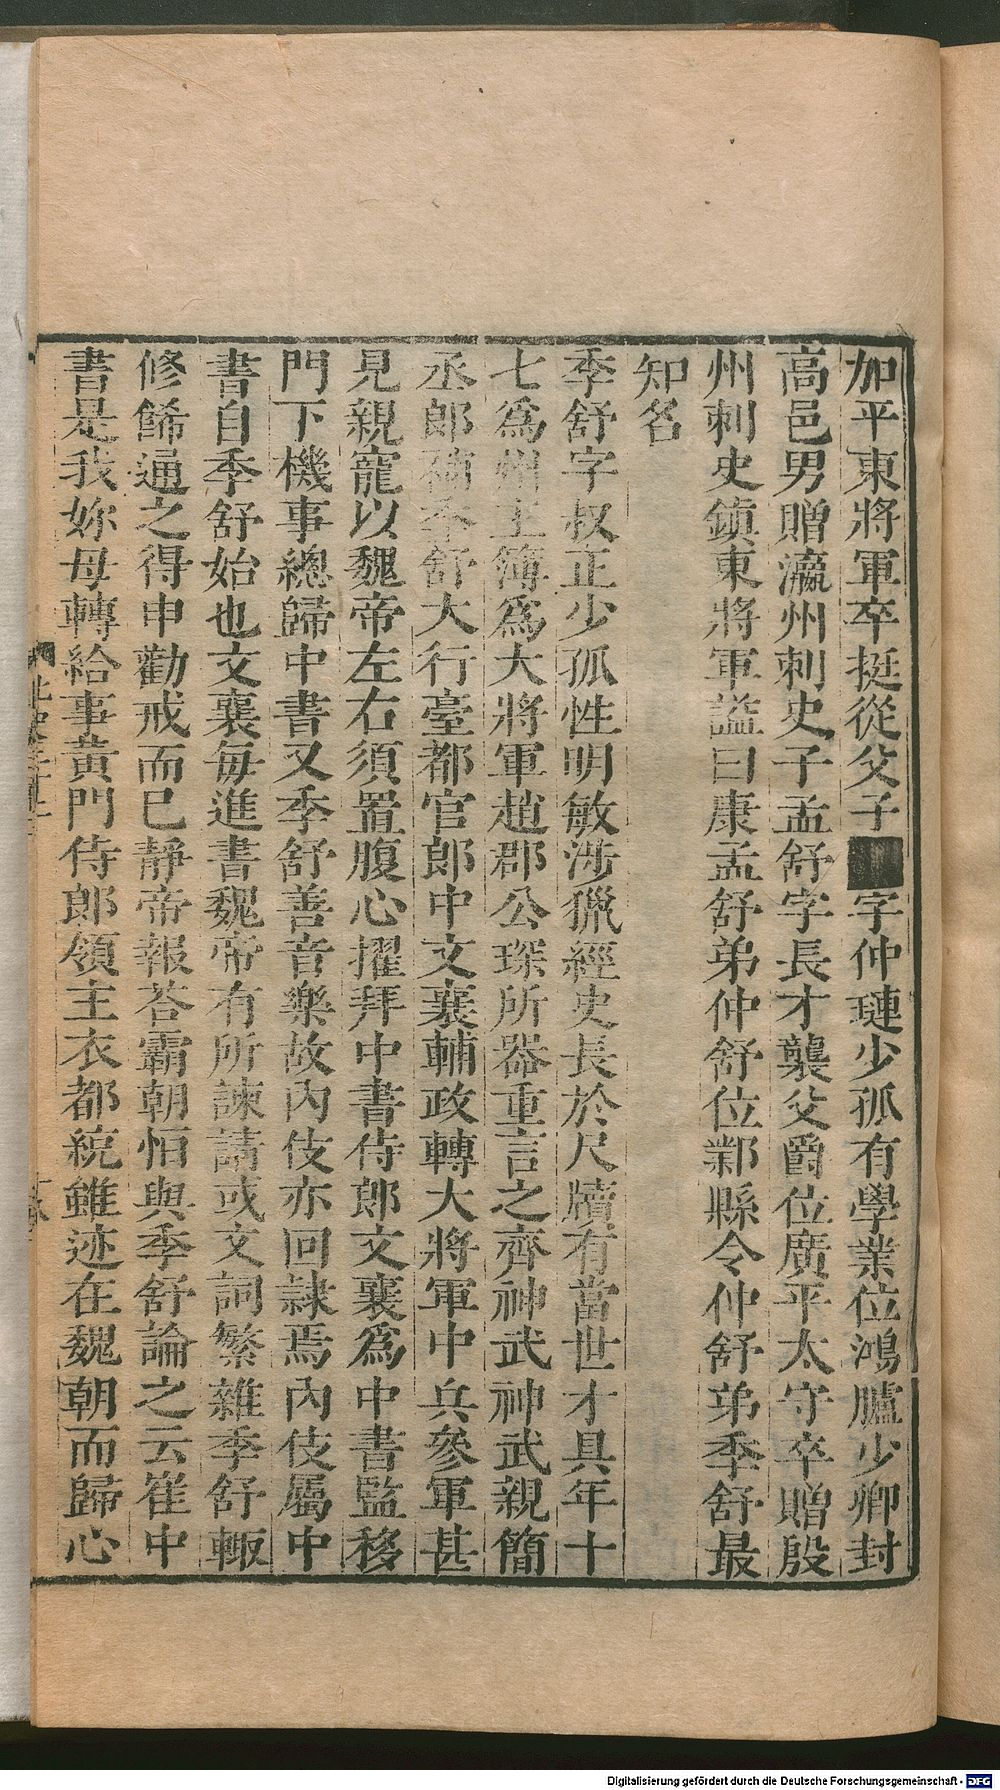 加平東將軍卒挺從父子■字仲璉少孤有學業位鴻臚少卿封
高邑男贈瀛州刺史子孟舒字長才襲父爵位廣平太守卒贈殷
州刺史鎮東將軍謚曰康孟舒弟仲舒位鄴縣令仲舒弟季舒最
知名
季舒字叔正少孤性明敏涉獵經史長於尺牘有當世才具年十
七爲州主簿爲大將軍趙郡公琛所器重言之齊神武神武親簡
丞郎補季舒大行臺都官郎中文襄輔政轉大將軍中兵參軍甚
見親寵以魏帝左右須置腹心擢拜中書侍郎文襄爲中書監移
門下機事總歸中書又季舒善音樂故內伎亦回隸焉內伎屬中
書自季舒始也文襄每進書魏帝有所諫請或文詞繁雜季舒輙
修餙通之得申勸戒而已靜帝報荅霸朝恒與季舒論之云崔中
書是我妳母轉給事黃門侍郎領主衣都統雖迹在魏朝而歸心
Digitalisierung gefördert durch die Deutsche Forschungsgemeinschaft - DFG